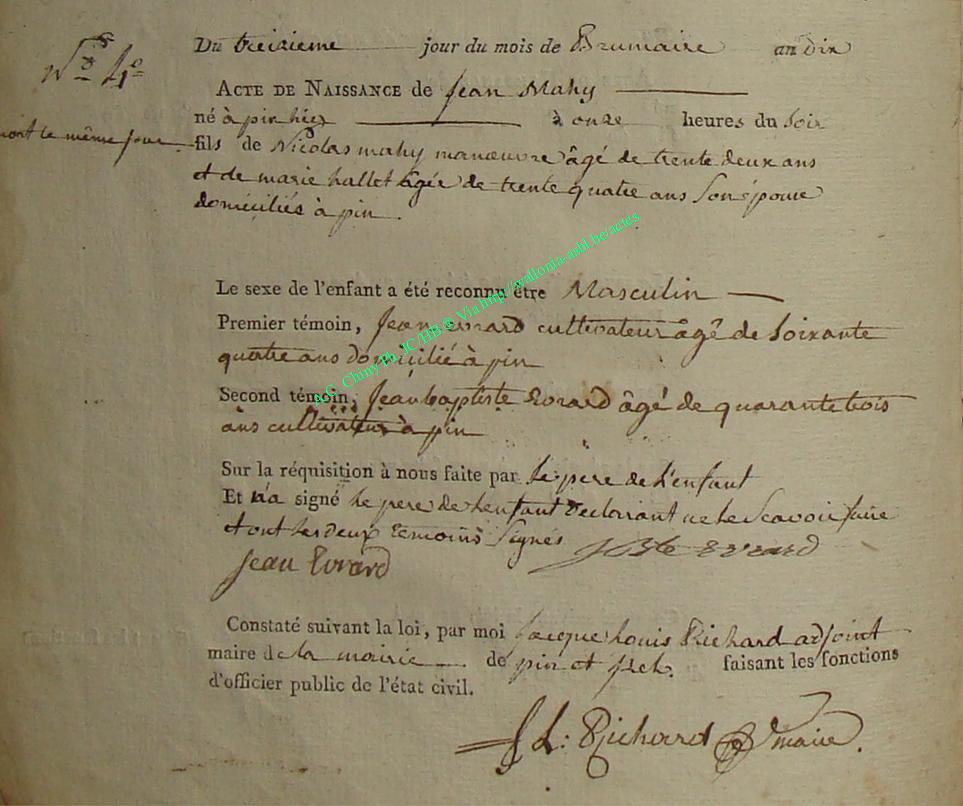 Nº 4e
mort le même jour
Du treizieme jour du mois de Brumaire an dix
ACTE DE NAISSANCE de Jean Mahy
né à pin hier à onze heures du Soir
fils de Nicolas mahy manœuvre âgé de trente deux ans
et de marie hallet âgée de trente quatre ans Son épouse
domiciliés à pin.
Le sexe de l'enfant a été reconnu être Masculin
Premier témoin, Jean evrard cultivateur âgé de Soixante
quatre ans domicilié à pin
Second témoin, Jean baptiste Evrard âgé de quarante trois
ans cultivateur à pin
Sur la réquisition à nous faite par le pere de l'enfant
Et n'a signé le pere de lenfant declarant ne le Scavoir faire
et ont les deux temoins Signés
JBte Evrard
Jean Evrard
Constaté suivant la loi, par moi Jacque Louis Richard adjoint
maire de la mairie de pin et faisant les fonctions
d'officier public de l'état civil.
J L: Richard maire.
A.C. Chiny Ph JC/HB ® Via http://wallonia-asbl.be/actes